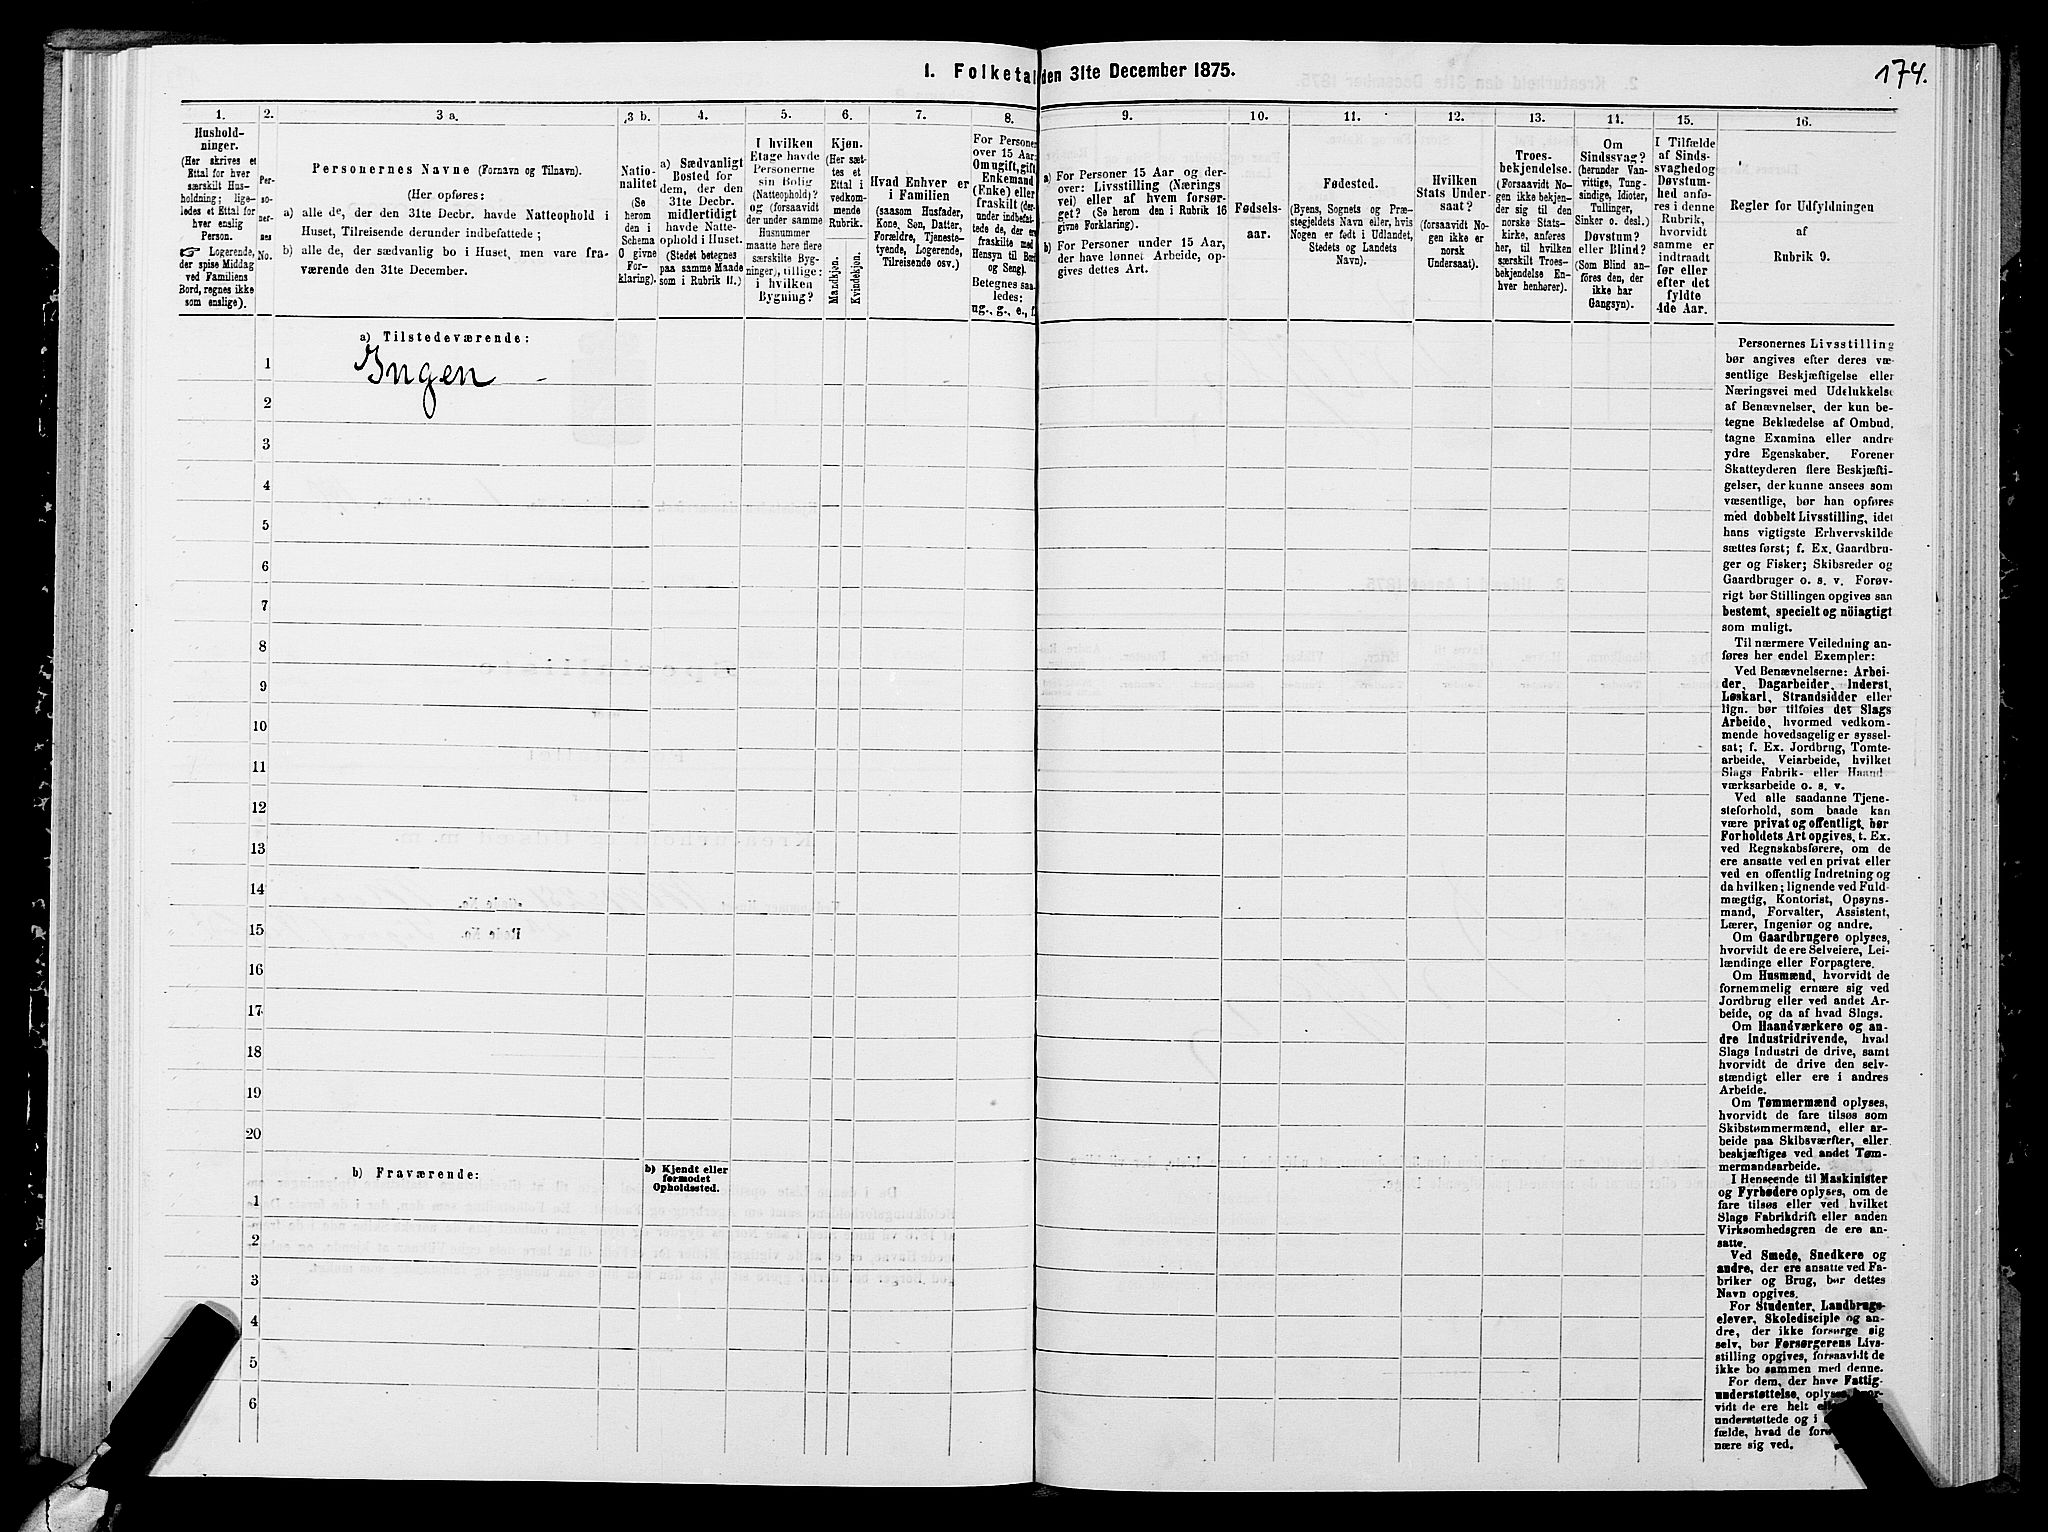 1. Folketal den 31te December 1875.
174.
1.
Hushold-
ninger.
(Her skrives et
Ettal for hver
særskilt Hus-
holdning; lige-
ledes et Ettal for
hver enslig
Person.
☞ Logerende,
der spise Middag
ved Familiens
Bord, regnes ikke
som enslige).
2.
Per-
so-
ner-
nes
No.
3 a.
Personernes Navne (Fornavn og Tilnavn).
(Her opføres:
a) alle de, der den 31te Decbr. havde Natteophold i
Huset, Tilreisende derunder indbefattede;
b) alle de, der sædvanlig bo i Huset, men vare fra-
værende den 31te December.
3 b.
Natio-
nalitet
(Se
herom
den i
Schema
O givne
For-
klaring).
4.
a) Sædvanligt
Bosted for
dem, der den
31te Decbr.
midlertidigt
havde Natte-
ophold i Huset.
(Stedet betegnes
paa samme Maade
som i Rubrik 11.)
5.
I hvilken
Etage havde
Personerne
sin Bolig
(Natteophold)?
og (forsaavidt
der under samme
Husnummer
maatte høre flere
særskilte Byg-
ninger), tillige:
i hvilken
Bygning?
6.
Kjøn.
(Her sæt-
tes et
Ettal i
vedkom-
mende
Rubrik.
Mandkjøn.
Kvindekjøn.
7.
Hvad Enhver er
i Familien
(saasom Husfader,
Kone, Søn, Datter,
Forældre, Tjeneste-
tyende, Logerende,
Tilreisende osv.)
8.
For Personer
over 15 Aar:
Om ugift, gift,
Enkemand
(Enke) eller
fraskilt (der-
under indbefat-
tede de, der ere
fraskilte med
Hensyn til Bord
og Seng).
Betegnes saa-
ledes:
ug., g., e., f.
9.
a) For Personer 15 Aar og der-
over: Livsstilling (Nærings-
vei) eller af hvem forsør-
get? (Se herom den i Rubrik 16
givne Forklaring).
b) For Personer under 15 Aar,
der have lønnet Arbeide, op-
gives dettes Art.
10.
Fødsels-
aar.
11.
Fødested.
(Byens, Sognets og Præ-
stegjeldets Navn eller, hvis
Nogen er født i Udlandet,
Stedets og Landets
Navn).
12.
Hvilken
Stats Under-
saat?
(forsaavidt No-
gen ikke er
norsk
Undersaat).
13.
Troes-
bekjendelse.
(Forsaavidt No-
gen ikke bekjen-
der sig til den
norske Stats-
kirke, anføres
her, til hvilken
særskilt Troes-
bekjendelse En-
hver henhører).
14.
Om
Sindssvag?
(herunder Van-
vittige, Tung-
sindige, Idioter,
Tullinger,
Sinker o. desl.)
Døvstum?
eller Blind?
(Som Blind an-
føres den, der
ikke har
Gangsyn).
15.
I Tilfælde
af Sinds-
svaghed og
Døvstum-
hed anfø-
res i denne
Rubrik,
hvorvidt
samme er
indtraadt
før eller
efter det
fyldte
4de Aar.
16.
Regler for Udfyldningen
af
Rubrik 9.
a) Tilstedeværende:
1
Ingen
2
3
4
5
6
7
8
9
10
11
12
13
14
15
16
17
18
19
20
b) Fraværende:
b) Kjendt eller
formodet
Opholdssted.
1
2
3
4
5
6
Personernes Livsstilling
bør angives efter deres væ-
sentlige Beskjæftigelse eller
Næringsvei med Udelukkelse
af Benævnelser, der kun be-
tegne Beklædelse af Ombud,
tagne Examina eller andre
ydre Egenskaber. Forener
Skatteyderen flere Beskjæfti-
gelser, der kunne ansees som
væsentlige, bør han opføres
med dobbelt Livsstilling, idet
hans vigtigste Erhvervskilde
sættes først; f. Ex. Gaardbru-
ger og Fisker; Skibsreder og
Gaardbruger o. s. v. Forøv-
rigt bør Stillingen opgives saa
bestemt, specielt og nöiagtigt
som muligt.
Til nærmere Veiledning an-
føres her endel Exempler:
Ved Benævnelserne: Arbei-
der, Dagarbeider, Inderst,
Løskarl, Strandsidder eller
lign. bør tilføies det Slags
Arbeide, hvormed vedkom-
mende hovedsagelig er syssel-
sat; f. Ex. Jordbrug, Tomte-
arbeide, Veiarbeide, hvilket
Slags Fabrik- eller Haand-
værksarbeide o. s. v.
Ved alle saadanne Tjene-
steforhold, som baade kan
være privat og offentligt, bør
Forholdets Art opgives, t. Ex.
ved Regnskabsførere, om de
ere ansatte ved en privat eller
ved en offentlig Indretning og
da hvilken; lignende ved Fuld-
mægtig, Kontorist, Opsyns-
mand, Forvalter, Assistent,
Lærer, Ingeniør og andre.
Om Gaardbrugere oplyses,
hvorvidt de ere Selveiere, Lei-
lændinge eller Forpagtere.
Om Husmænd, hvorvidt de
fornemmelig ernære sig ved
Jordbrug eller ved andet Ar-
beide, og da af hvad Slags.
Om Haandværkere og an-
dre Industridrivende, hvad
Slags Industri de drive, samt
hvorvidt de drive den selv-
stændigt eller ere i andres
Arbeide.
Om Tømmermænd oplyses,
hvorvidt de fare tilsøs som
Skibstømmermænd, eller ar-
beide paa Skibsværfter, eller
beskjæftiges ved andet Tøm-
mermandsarbeide.
I Henseende til Maskinister
og Fyrbødere oplyses, om de
fare tilsøs eller ved hvilket
Slags Fabrikdrift eller anden
Virksomhedsgren de ere an-
satte.
Ved Smede, Snedkere og
andre, der ere ansatte ved Fa-
briker og Brug, bør dettes
Navn opgives.
For Studenter, Landbrugs-
elever, Skoledisciple og an-
dre, der ikke forsørge sig
selv, bør Forsørgerens Livs-
stilling opgives, forsaavidt de
ikke bo sammen med denne.
For dem, der have Fattig-
understøttelse, oplyses, hvor-
vidt de ere helt
understøttede og i
fælde, hvad de
nære sig ved.